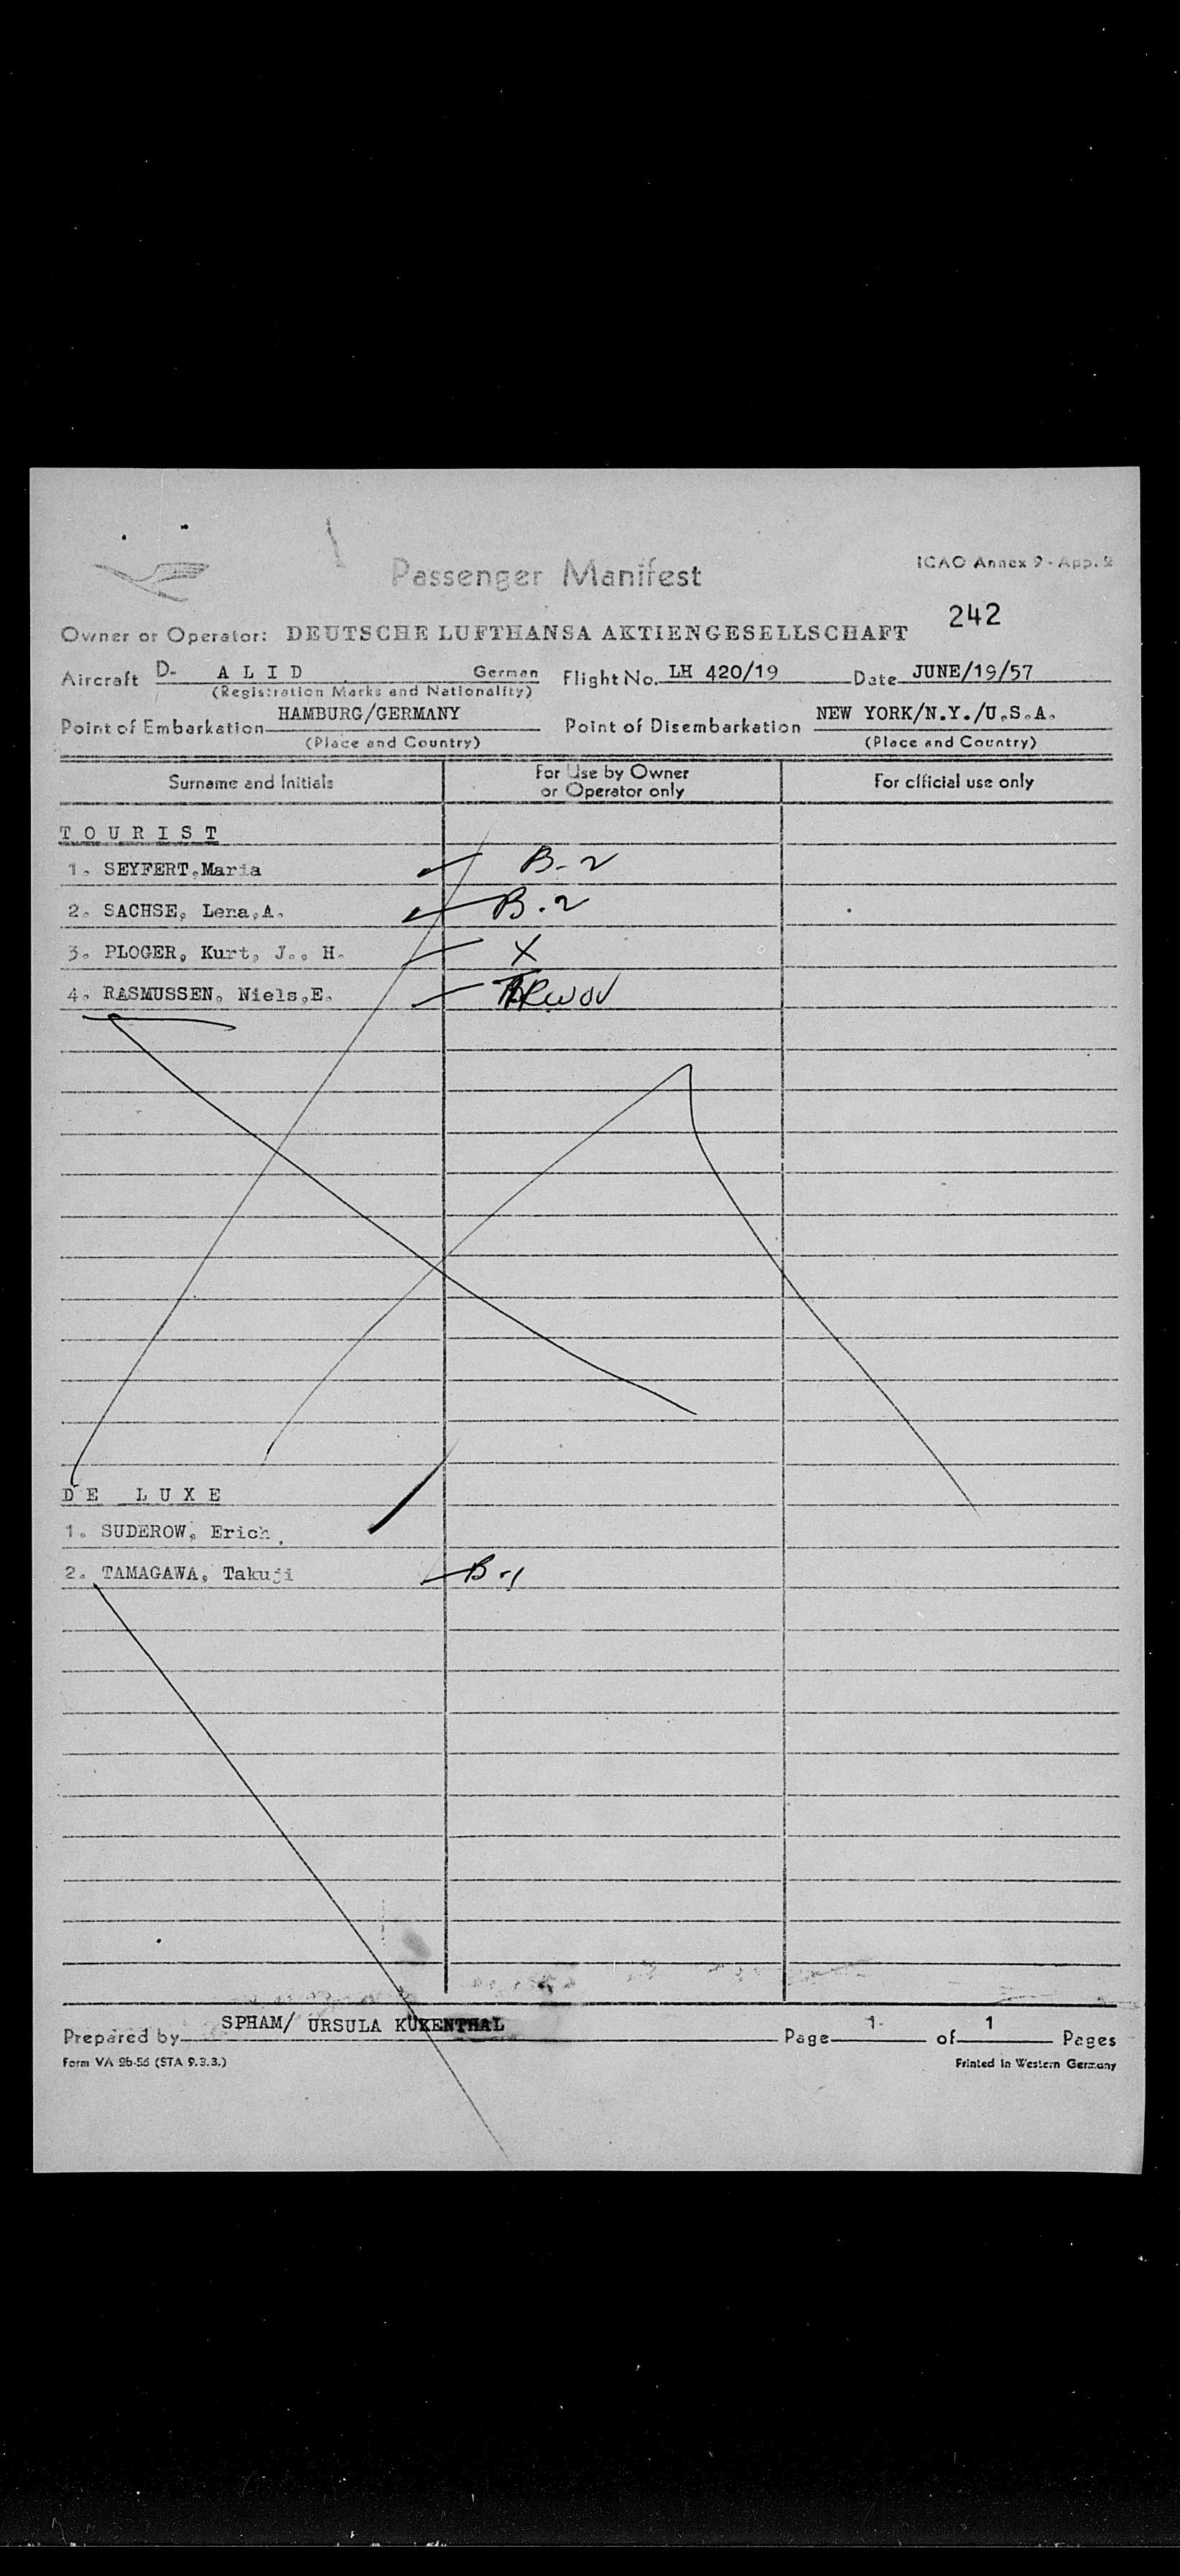 Passenger Manifest
ICAO Annex 9 - App. 2
242
Owner or Operator: DEUTSCHE LUFTHANSA AKTIENGESELLSCHAFT
Aircraft D- A L I D German Flight No. LH 420/19 Date JUNE/19/57
(Registration Marks and Nationality)
Point of Embarkation HAMBURG/GERMANY Point of Disembarkation NEW YORK/N.Y./U.S.A.
(Place and Country) (Place and Country)
Surname and Initials For Use by Owner or Operator only For official use only
T O U R I S T
1. SEYFERT,Maria B-2
2. SACHSE, Lena,A. B.2
3. PLOGER, Kurt, J., H. X
4. RASMUSSEN, Niels,E.
D E L U X E
1. SUDEROW, Erich
2. TAMAGAWA, Takuji B-1
Prepared by SPHAM/ URSULA KUKENTHAL Page 1 of 1 Pages
Form VA 2b-56 (STA 9.3.3.) Printed in Western Germany